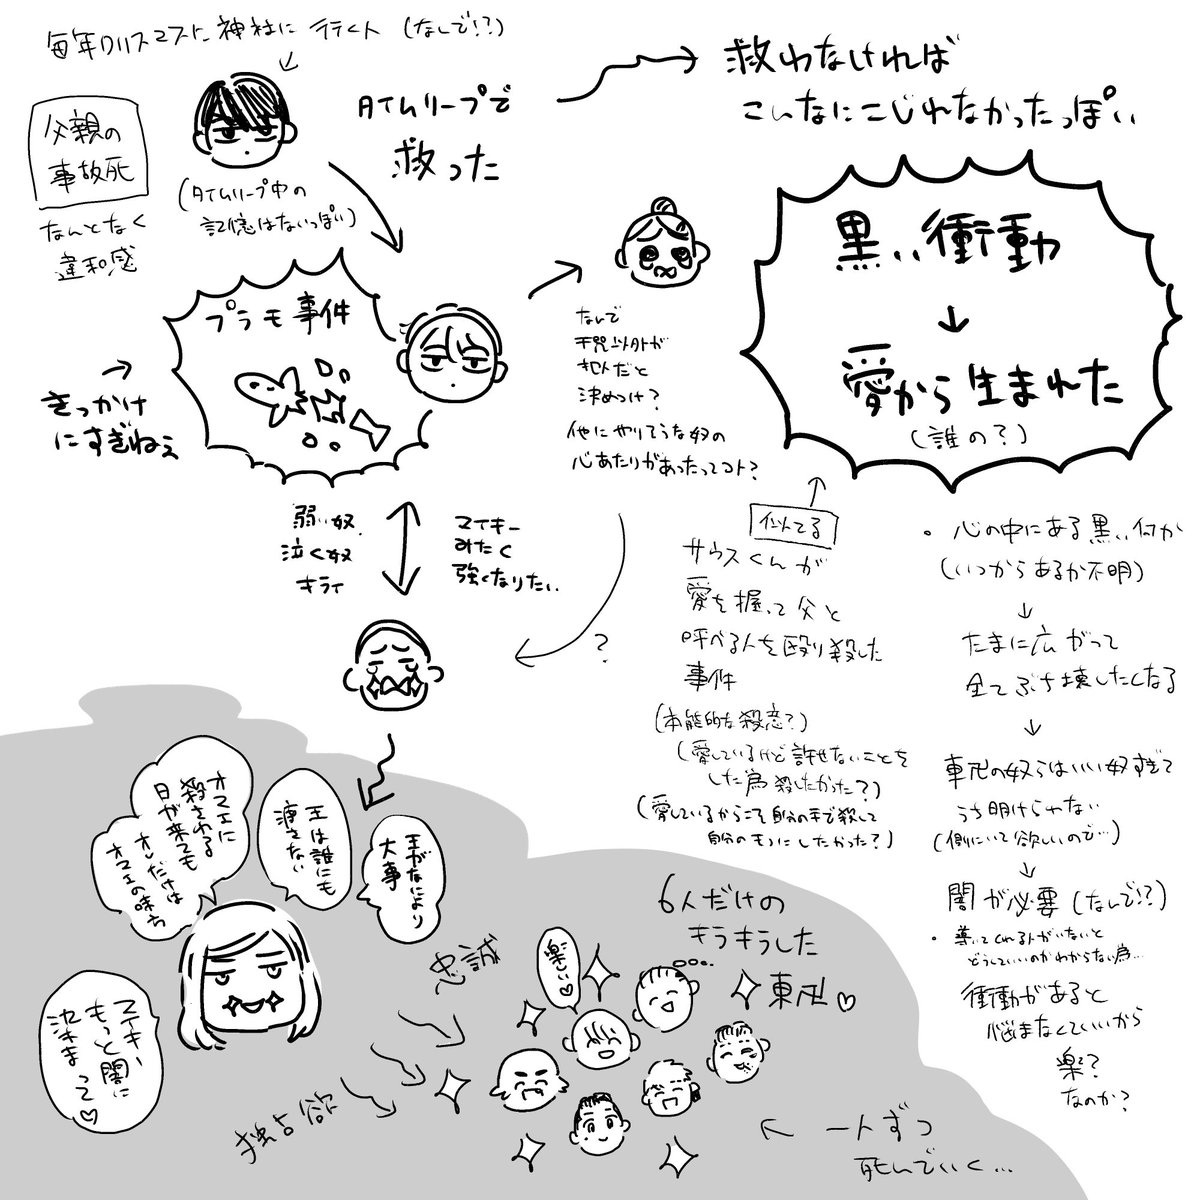 毎年クリスマスに神社に行く人(なんで!?)
父親の
事故死
なんとなく
違和感
(タイムリープ中の
記憶はないっぽい)
タイムリープで
救った
救わなければ
こんなにこじれなかったっぽい
プラモ事件
きっかけ
にすぎねぇ
なんで
決めつけ?
他にやりそうな奴の
心あたりがあったってコト?
黒い衝動
↓
愛から生まれた
(誰の?)
弱い奴
泣く奴
キライ
マイキー
みたく
強くなりたい
?
似てる
サウスくんが
愛を握って父と
呼べる人を殴り殺した
事件
(本能的な殺意?)
(愛しているけど許せないことを
した為殺したかった?)
(愛しているからこそ自分の手で殺して
自分のモノにしたかった?)
・心の中にある黒い何か
(いつからあるか不明)
↓
たまに広がって
全てぶち壊したくなる
↓
東卍の奴らはいい奴すぎて
うち明けられない
(側にいて欲しいので…)
↓
闇が必要(なんで!?)
・導いてくれる人がいないと
どうしていいのかわからない為…
衝動があると
悩まなくていいから
楽?
なのか?
オマエに
殺される
日が来ても
オレだけは
オマエの味方
王は誰にも
渡さない
王がなにより
大事
マイキー
もっと闇に
染まって♡
忠誠
独占欲
6人だけの
キラキラした
東卍♡
楽しい♡
一人ずつ
死んでいく…